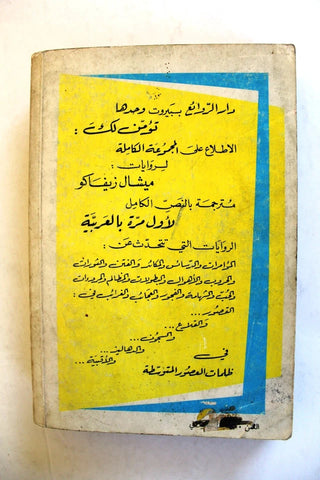 دار الروائع ببيروت وحدها
تؤمن لك :
الاطلاع على المجموعة الكاملة
لروايات :
ميشال زيفاكو
مترجمة بالنص الكامل
لأول مرة بالعربية
الروايات التي تتحدث عن :
المؤامرات والدسائس والمكائد والفتن والثورات
والحروب والأهوال والبطولات والمظالم والمروءات
والحب والشهامة والفجور والعجائب والغرائب في :
القصور ...
والقلاع ...
والسجون ...
والدهاليز ...
والأقبية ...
في
ظلمات العصور المتوسطة